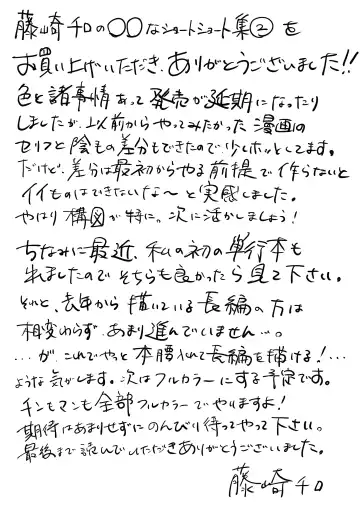 藤崎チロの○○なショートショート集②を
お買い上げいただき、ありがとうございました!!
色々諸事情あって発売が延期になったり
しましたが、以前からやってみたかった漫画の
セリフと陰毛の差分もできたので少しホッとしてます。
だけど、差分は最初からやる前提で作らないと
イイものはできないな〜と実感しました。
やはり構図が特に。次に活かしましょう!
ちなみに最近、私の初の単行本も
出ましたのでそちらも良かったら見て下さい。
それと、去年から描いている長編の方は
相変わらず、あまり進んでいません…。
…が、これでやっと本腰入れて長編を描ける!…
ような気がします。次はフルカラーにする予定です。
チンもマンも全部フルカラーでやりますよ!
期待はあまりせずにのんびり待ってやって下さい。
最後まで読んでいただきありがとうございました。
藤崎チロ